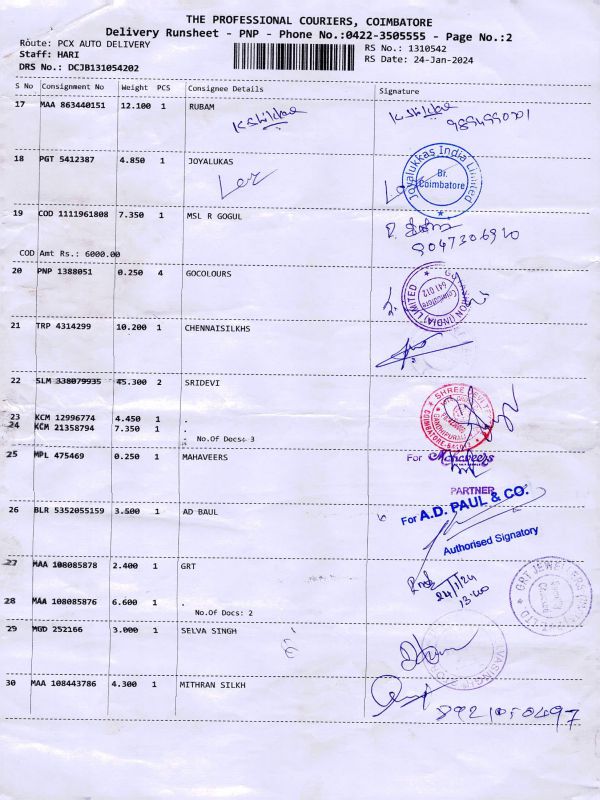 THE PROFESSIONAL COURIERS, COIMBATORE
Delivery Runsheet - PNP - Phone No.:0422-3505555 - Page No.:2
Route: PCX AUTO DELIVERY
RS No.: 1310542
Staff: HARI
RS Date: 24-Jan-2024
DRS No.: DCJB131054202
S No Consignment No Weight PCS Consignee Details Signature
17 MAA 863440151 12.100 1 RUBAM
18 PGT 5412387 4.850 1 JOYALUKAS
Joyalukkas India Limited
Br. Coimbatore
19 COD 1111961808 7.350 1 MSL R GOGUL
9047306920
COD Amt Rs.: 6000.00
20 PNP 1388051 0.250 4 GOCOLOURS
(INDIA) LIMITED
Coimbatore
641 012
21 TRP 4314299 10.200 1 CHENNAISILKHS
22 SLM 338079935 45.300 2 SRIDEVI
23 KCM 12996774 4.450 1 .
24 KCM 21358794 7.350 1 .
No.Of Docs: 3
25 MPL 475469 0.250 1 MAHAVEERS
For Mahaveers
PARTNER
26 BLR 5352055159 3.500 1 AD BAUL
For A.D. PAUL & CO.
Authorised Signatory
27 MAA 108085878 2.400 1 GRT
24/1/24
13:40
28 MAA 108085876 6.600 1 .
No.Of Docs: 2
29 MGD 252166 3.000 1 SELVA SINGH
30 MAA 108443786 4.300 1 MITHRAN SILKH
8921050497